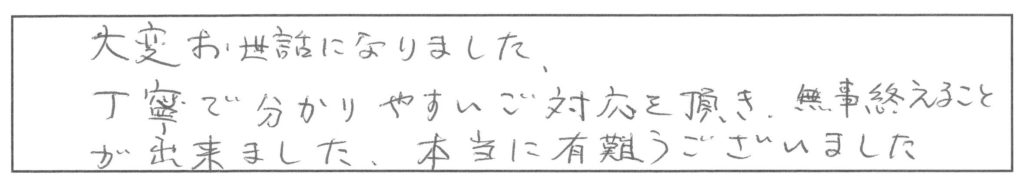 大変お世話になりました、
丁寧で分かりやすいご対応を頂き、無事終えること
が出来ました、本当に有難うございました